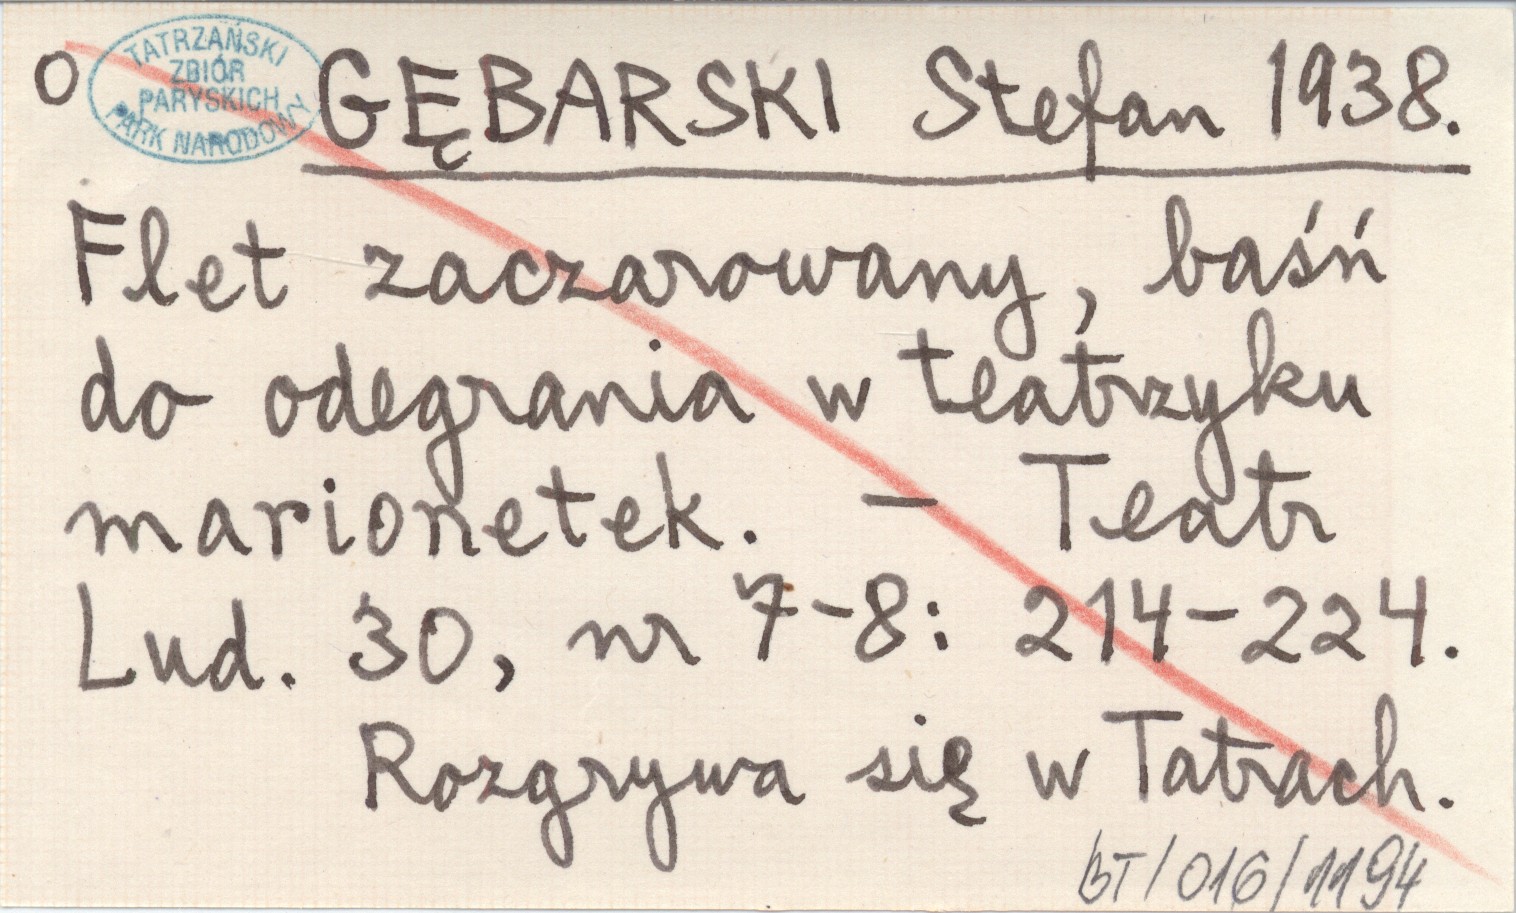 o
TATRZAŃSKI
ZBIÓR
PARYSKICH
PARK NARODOWY
GĘBARSKI Stefan 1938.
Flet zaczarowany, baśń
do odegrania w teatrzyku
marionetek. – Teatr
Lud. 30, nr 7-8: 214-224.
Rozgrywa się w Tatrach.
BT/016/1194